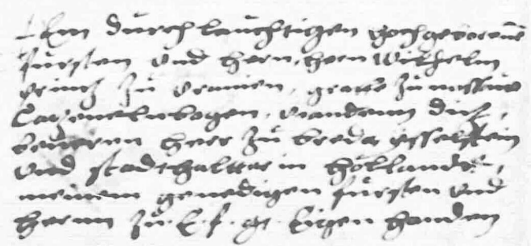 Dem durchleuchtigen hochgebornen
fursten und hern, hern Wilhelm
printz zu Uranien, grave zu Nassau
Catzenelnbogen, Vianden, Dietz,
beueren herr zu breda
und stadthalter in hollandt,
meinem genedigen fursten und
hernn zu E. f. g. Eigen handen